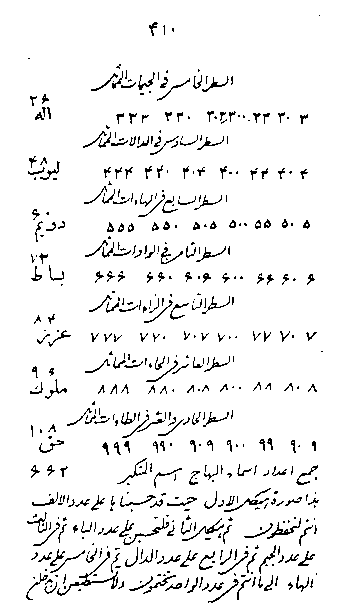 ٤١٠
السطر الخامس فى الجيمات الثمان
٢٦
اله ٣ ٣٠ ٣٣ ٣٠٠ ٣٠٣ ٣٣٠ ٣٣٣
السطر السادس فى الدالات الثمان
٤٨
٤ ٤٠ ٤٤ ٤٠٠ ٤٠٤ ٤٤٠ ٤٤٤
السطر السابع فى الهاءات الثمان
٦٠
٥ ٥٠ ٥٥ ٥٠٠ ٥٠٥ ٥٥٠ ٥٥٥
السطر الثامن فى الواوات الثمان
٧٢
باسط ٦ ٦٠ ٦٦ ٦٠٠ ٦٠٦ ٦٦٠ ٦٦٦
السطر التاسع فى الزاءات الثمان
٨٤
عزيز ٧ ٧٠ ٧٧ ٧٠٠ ٧٠٧ ٧٧٠ ٧٧٧
السطر العاشر فى الحاءات الثمان
٩٦
ملوك ٨ ٨٠ ٨٨ ٨٠٠ ٨٠٨ ٨٨٠ ٨٨٨
السطر الحادى والعشر فى الطاءات الثمان
١٠٨
حق ٩ ٩٠ ٩٩ ٩٠٠ ٩٠٩ ٩٩٠ ٩٩٩
جمع اعداد اسماء البهاج اسم المتكبر ٦٦٢
هذا صورة هيكل الاول حيث قد حسبنا ها على عدد الالف
انتم لتحفظون ثم هيكل الثانى فلتحسبن على عدد الباء ثم فى الثالث
على عدد الجيم ثم فى الرابع على عدد الدال ثم فى الخامس على عدد
الهاء الى ما انتم فى عدد الواحد تختمون